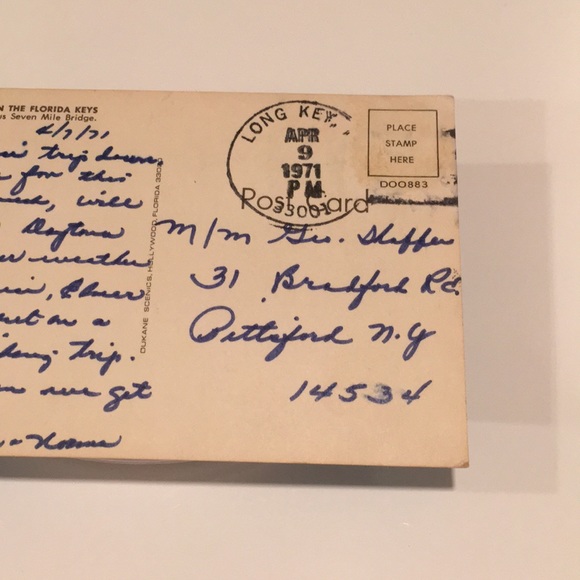 N THE FLORIDA KEYS
us Seven Mile Bridge.
4/7/71
trip down
for this
will
Daytona
weather
on a
trip.
we get
Norma
DUKANE SCENICS, HOLLYWOOD, FLORIDA 330
LONG KEY,
APR
9
1971
PM
33001
Post Card
PLACE
STAMP
HERE
DOO883
M/M Geo. Shaffer
31 Bradford Rd.
Pittsford N.Y
14534